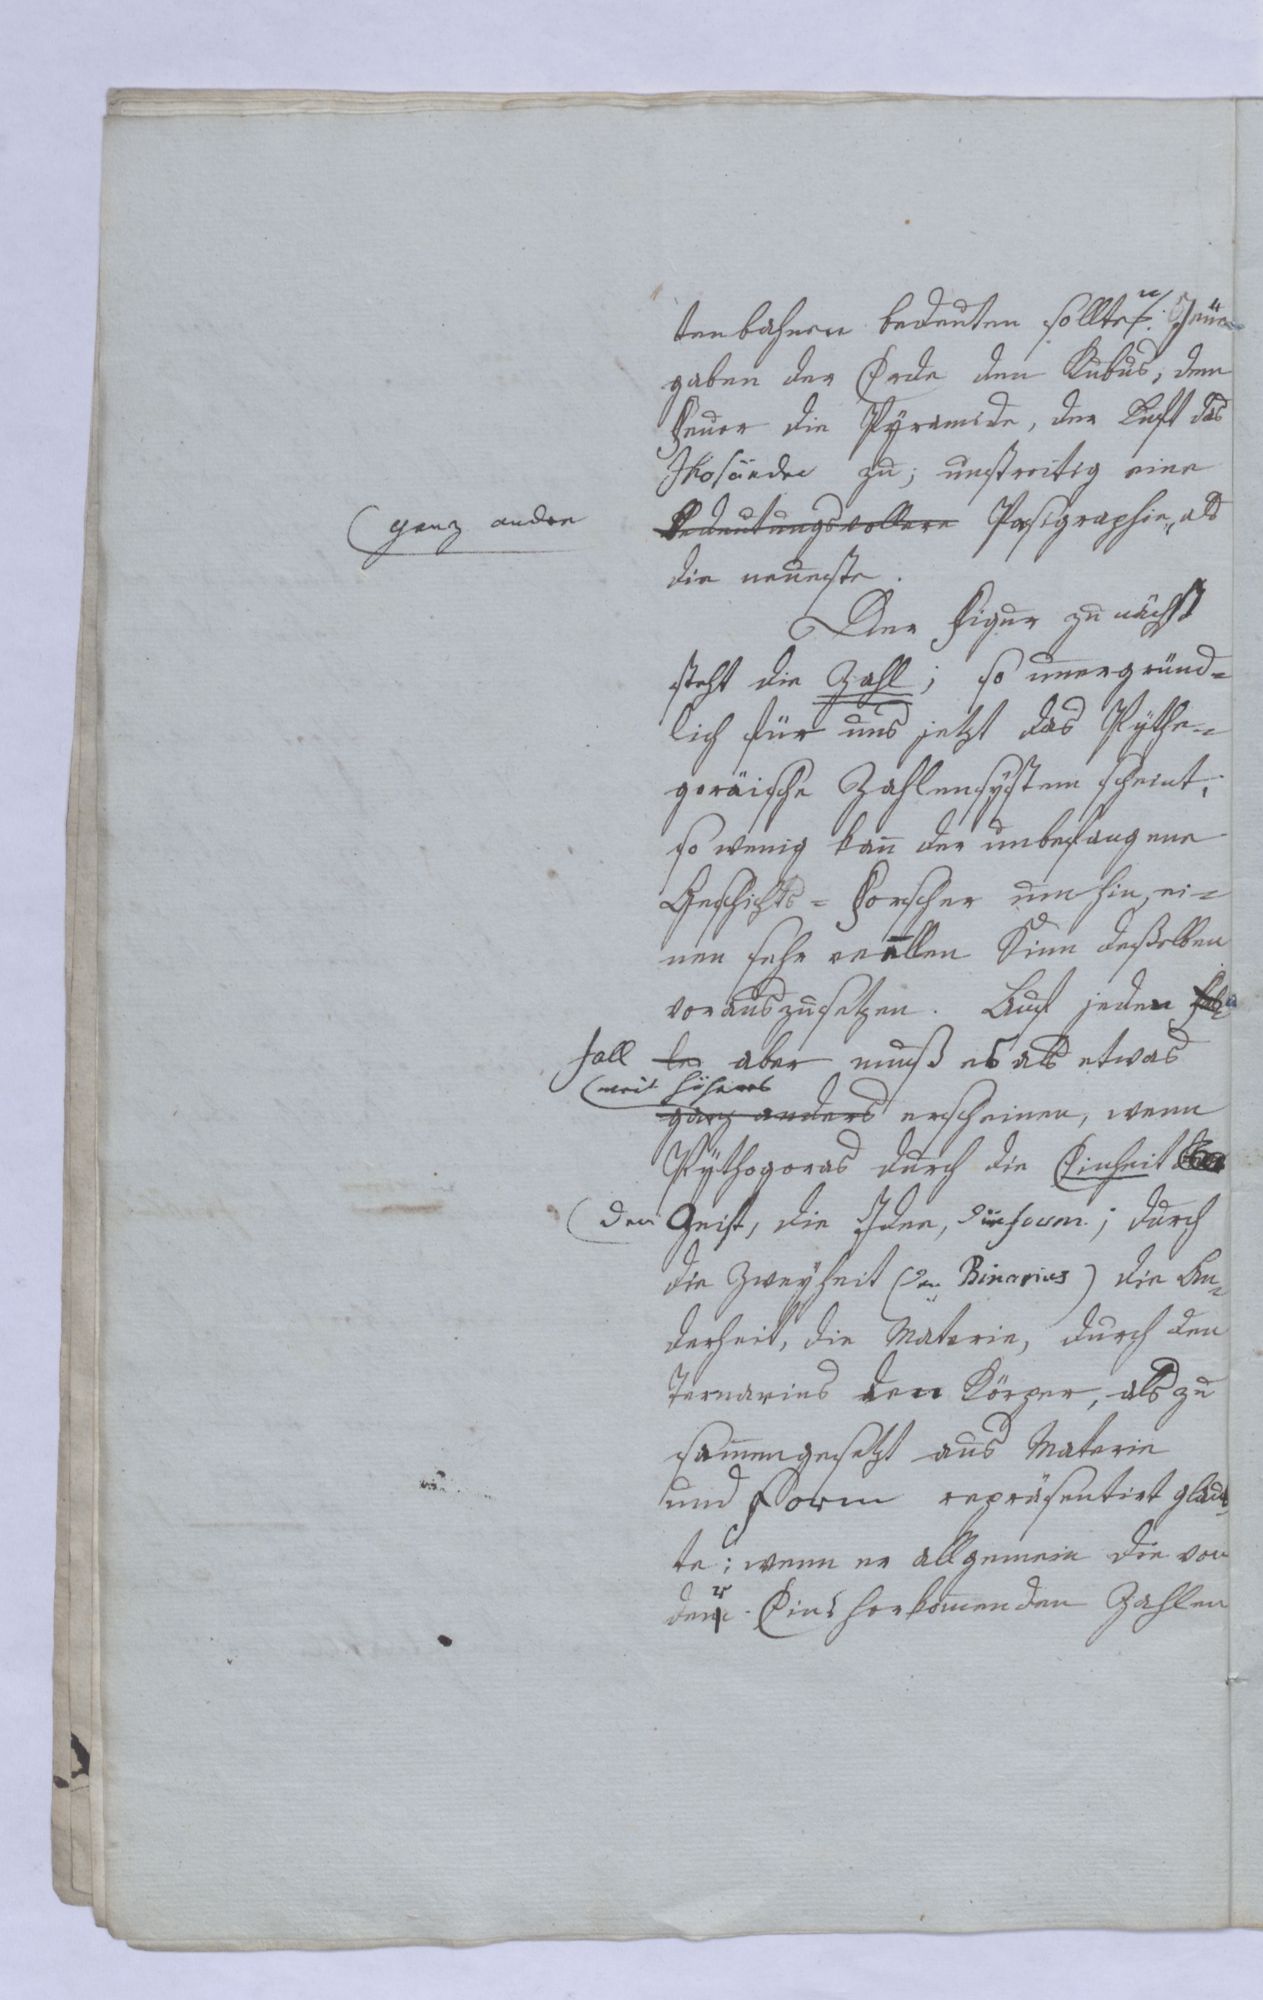 tenbahnen bedeuten sollten. Jene
gaben der Erde den Kubus, dem
Feuer die Pyramide, der Luft das
Ikosaeder zu; unstreitig eine
(ganz andre
bedeutungsvollere Pasigraphie, als
die neueste.
Der Figur zunächst
steht die Zahl; so unergründ=
lich für uns jetzt das Pytha=
goräische Zahlensystem scheint,
so wenig kann der unbefangene
Geschichts=Forscher umhin, ei=
nen sehr reellen Sinn deßelben
vorauszusetzen. Auf jeden
fall aber muß es als etwas
(weit höheres
ganz anders erscheinen, wenn
Pythagoras durch die Einheit
(den Geist, die Idee, die form; durch
die Zweyheit (den Binarius) die An=
derheit, die Materie, durch den
Ternarius den Körper, als zu
sammengesetzt aus Materie
und Form repräsentirt glaub
te; wenn er allgemein die von
der Eins herkommenden Zahlen